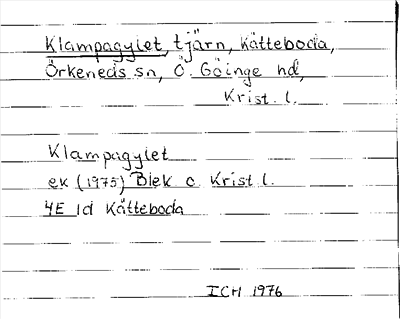 Klampagylet, tjärn, Kätteboda,
Örkeneds sn, Ö. Göinge hd,
Krist. l.
Klampagylet
ek (1975) Blek c Krist l.
4E 1d Kätteboda
ICH 1976